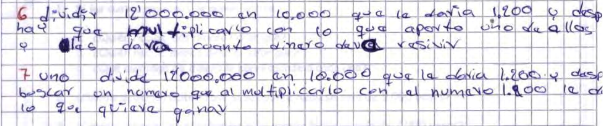 6 dividir 12'000.000 en 10.000 que le daria 1,200 y desp
hay que multiplicarlo con lo que aporto uno de ellos
y les dara cuanto dinero deva resivir
7 uno divide 12000.000 en 10.000 que la daria 1.200 y desp
buscar un numero que al multiplicarlo con el numero 1.200 le d
lo que quiere ganar